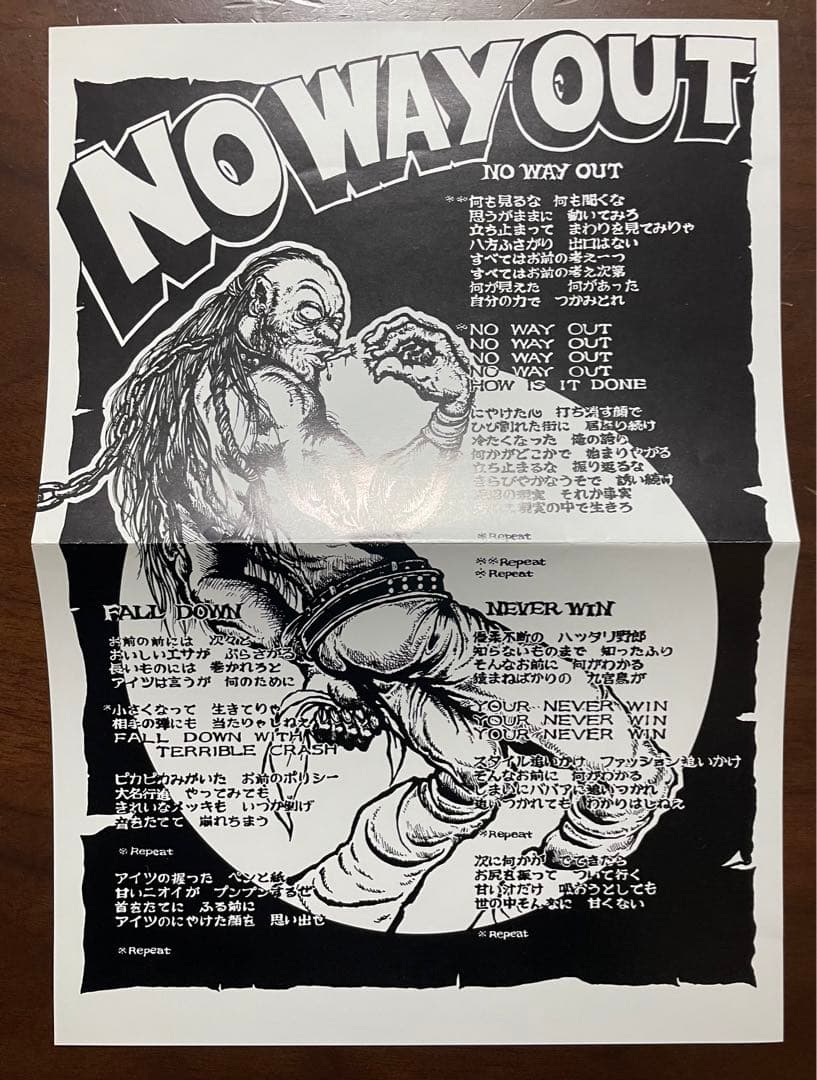 NO WAY OUT
NO WAY OUT
**何も見るな 何も聞くな
思うがままに 動いてみろ
立ち止まって まわりを見てみりゃ
八方ふさがり 出口はない
すべてはお前の考え一つ
すべてはお前の考え次第
何が見えた 何があった
自分の力で つかみとれ
*NO WAY OUT
NO WAY OUT
NO WAY OUT
NO WAY OUT
HOW IS IT DONE
にやけた心 打ち消す顔で
ひび割れた街に 居座り続け
冷たくなった 俺の誇り
何かがどこかで 始まりやがる
立ち止まるな 振り返るな
きらびやかなうそで 誘い続け
の現実 それが事実
現実の中で生きろ
*Repeat
**Repeat
*Repeat
FALL DOWN
お前の前には 次々と
おいしいエサが ぶらさがる
長いものには 巻かれろと
アイツは言うが 何のために
*小さくなって 生きてりゃ
相手の弾にも 当たりゃしねえ
FALL DOWN WITH
TERRIBLE CRASH
ピカピカみがいた お前のポリシー
大名行進 やってみても
きれいなメッキも いつか剥げ
音をたてて 崩れちまう
*Repeat
アイツの握った ペンと紙
甘いニオイが プンプンするぜ
首をたてに ふる前に
アイツのにやけた顔を 思い出せ
*Repeat
NEVER WIN
優柔不断の ハッタリ野郎
知らないものまで 知ったふり
そんなお前に 何がわかる
猿まねばかりの 九官鳥が
*YOUR NEVER WIN
YOUR NEVER WIN
YOUR NEVER WIN
スタイル追いかけ ファッション追いかけ
そんなお前に 何がわかる
しまいにババアに追いつかれ
追いつかれても わかりはしねえ
*Repeat
次に何かが でてきたら
お尻を振って ついて行く
甘い汁だけ 吸おうとしても
世の中そんなに 甘くない
*Repeat